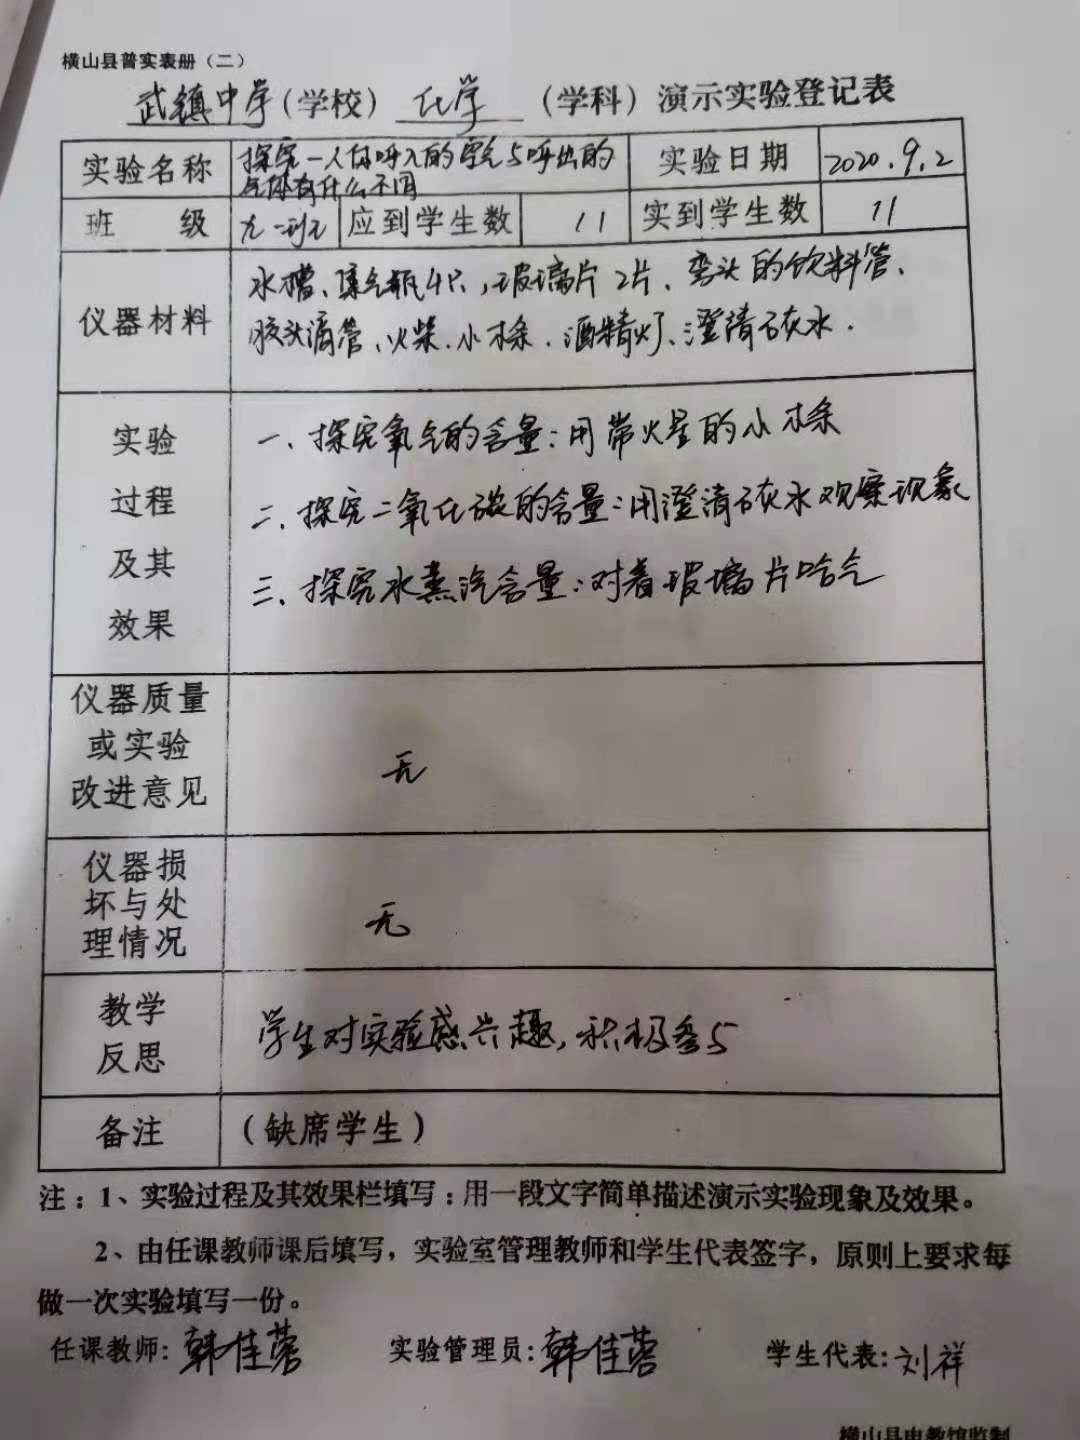 横山县普实表册（二）
武镇中学（学校） 化学 （学科）演示实验登记表
实验名称 探究一人体呼入的空气与呼出的气体有什么不同 实验日期 2020.9.2
班 级 九 一班 应到学生数 11 实到学生数 11
仪器材料 水槽、集气瓶4只，玻璃片2片、弯头的饮料管、
胶头滴管、火柴、小木条、酒精灯、澄清石灰水.
实验
过程
及其
效果
一、探究氧气的含量：用带火星的小木条
二、探究二氧化碳的含量：用澄清石灰水观察现象
三、探究水蒸汽含量：对着玻璃片哈气
仪器质量
或实验
改进意见
无
仪器损
坏与处
理情况
无
教学
反思
学生对实验感兴趣，积极参与
备注 （缺席学生）
注：1、实验过程及其效果栏填写：用一段文字简单描述演示实验现象及效果。
2、由任课教师课后填写，实验室管理教师和学生代表签字，原则上要求每
做一次实验填写一份。
任课教师：韩佳蓉 实验管理员：韩佳蓉 学生代表：刘祥
横山县电教馆监制